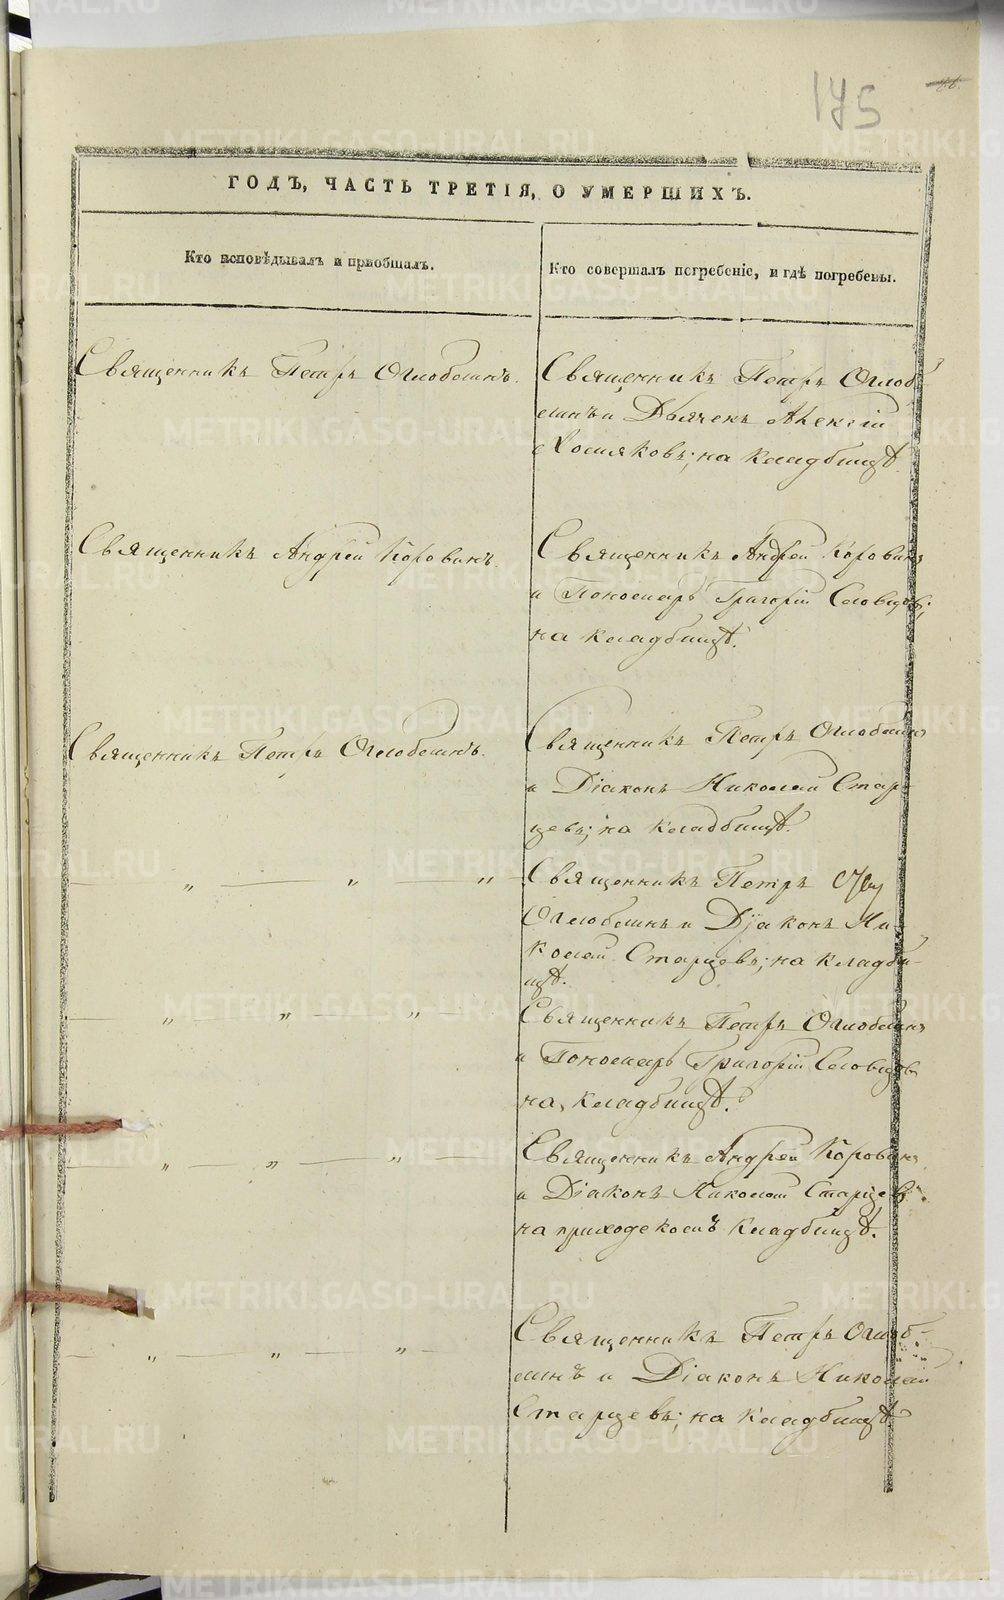 175
ГОДЪ, ЧАСТЬ ТРЕТІЯ, О УМЕРШИХЪ.
Кто исповѣдывалъ и пріобщалъ.
Кто совершалъ погребеніе, и гдѣ погребены.
Священникъ Петръ Оглоблинъ.
Священникъ Петръ Оглоб-
линъ и Дьячекъ Алексій
Хомяковъ; на кладбищѣ.
Священникъ Андрей Коровинъ.
Священникъ Андрей Коровинъ
и Пономарь Григорій Словцовъ;
на кладбищѣ.
Священникъ Петръ Оглоблинъ.
Священникъ Петръ Оглоблинъ
и Діаконъ Николай Стар-
цевъ; на кладбищѣ.
— „ — „ — „ —
Священникъ Петръ
Оглоблинъ и Діаконъ Ни-
колай Старцевъ; на кладби-
щѣ.
— „ „ — „ —
Священникъ Петръ Оглоблинъ
и Пономарь Григорій Словцовъ
на кладбищѣ.
— „ „ — „ —
Священникъ Андрей Коровинъ
и Діаконъ Николай Старцевъ.
на приходскомъ кладбищѣ.
— „ „ — „ —
Священникъ Петръ Оглоб-
линъ и Діаконъ Николай
Старцевъ; на кладбищѣ
METRIKI.GASO-URAL.RU